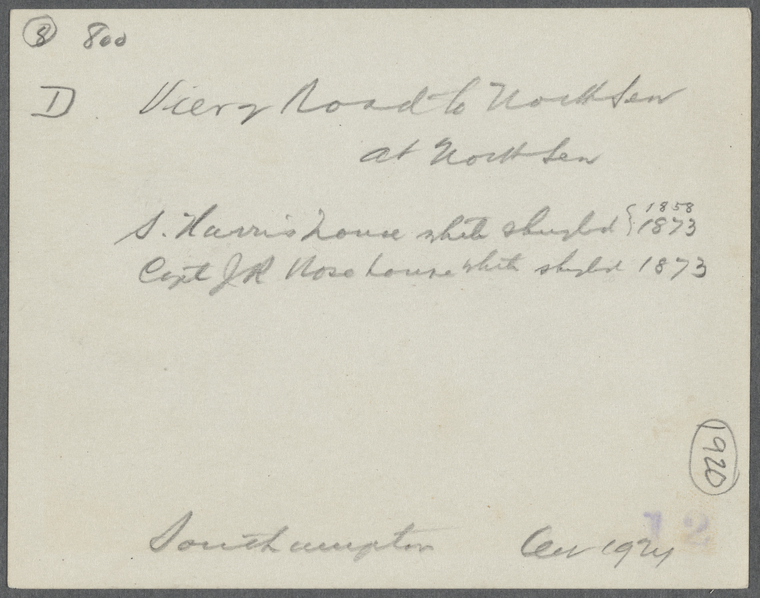 8 800
D View of Road to North Sea
at North Sea
S. Harris house white shingled { 1858
1873
Capt J R Rose house white shingled 1873
1920
12
Southampton 192